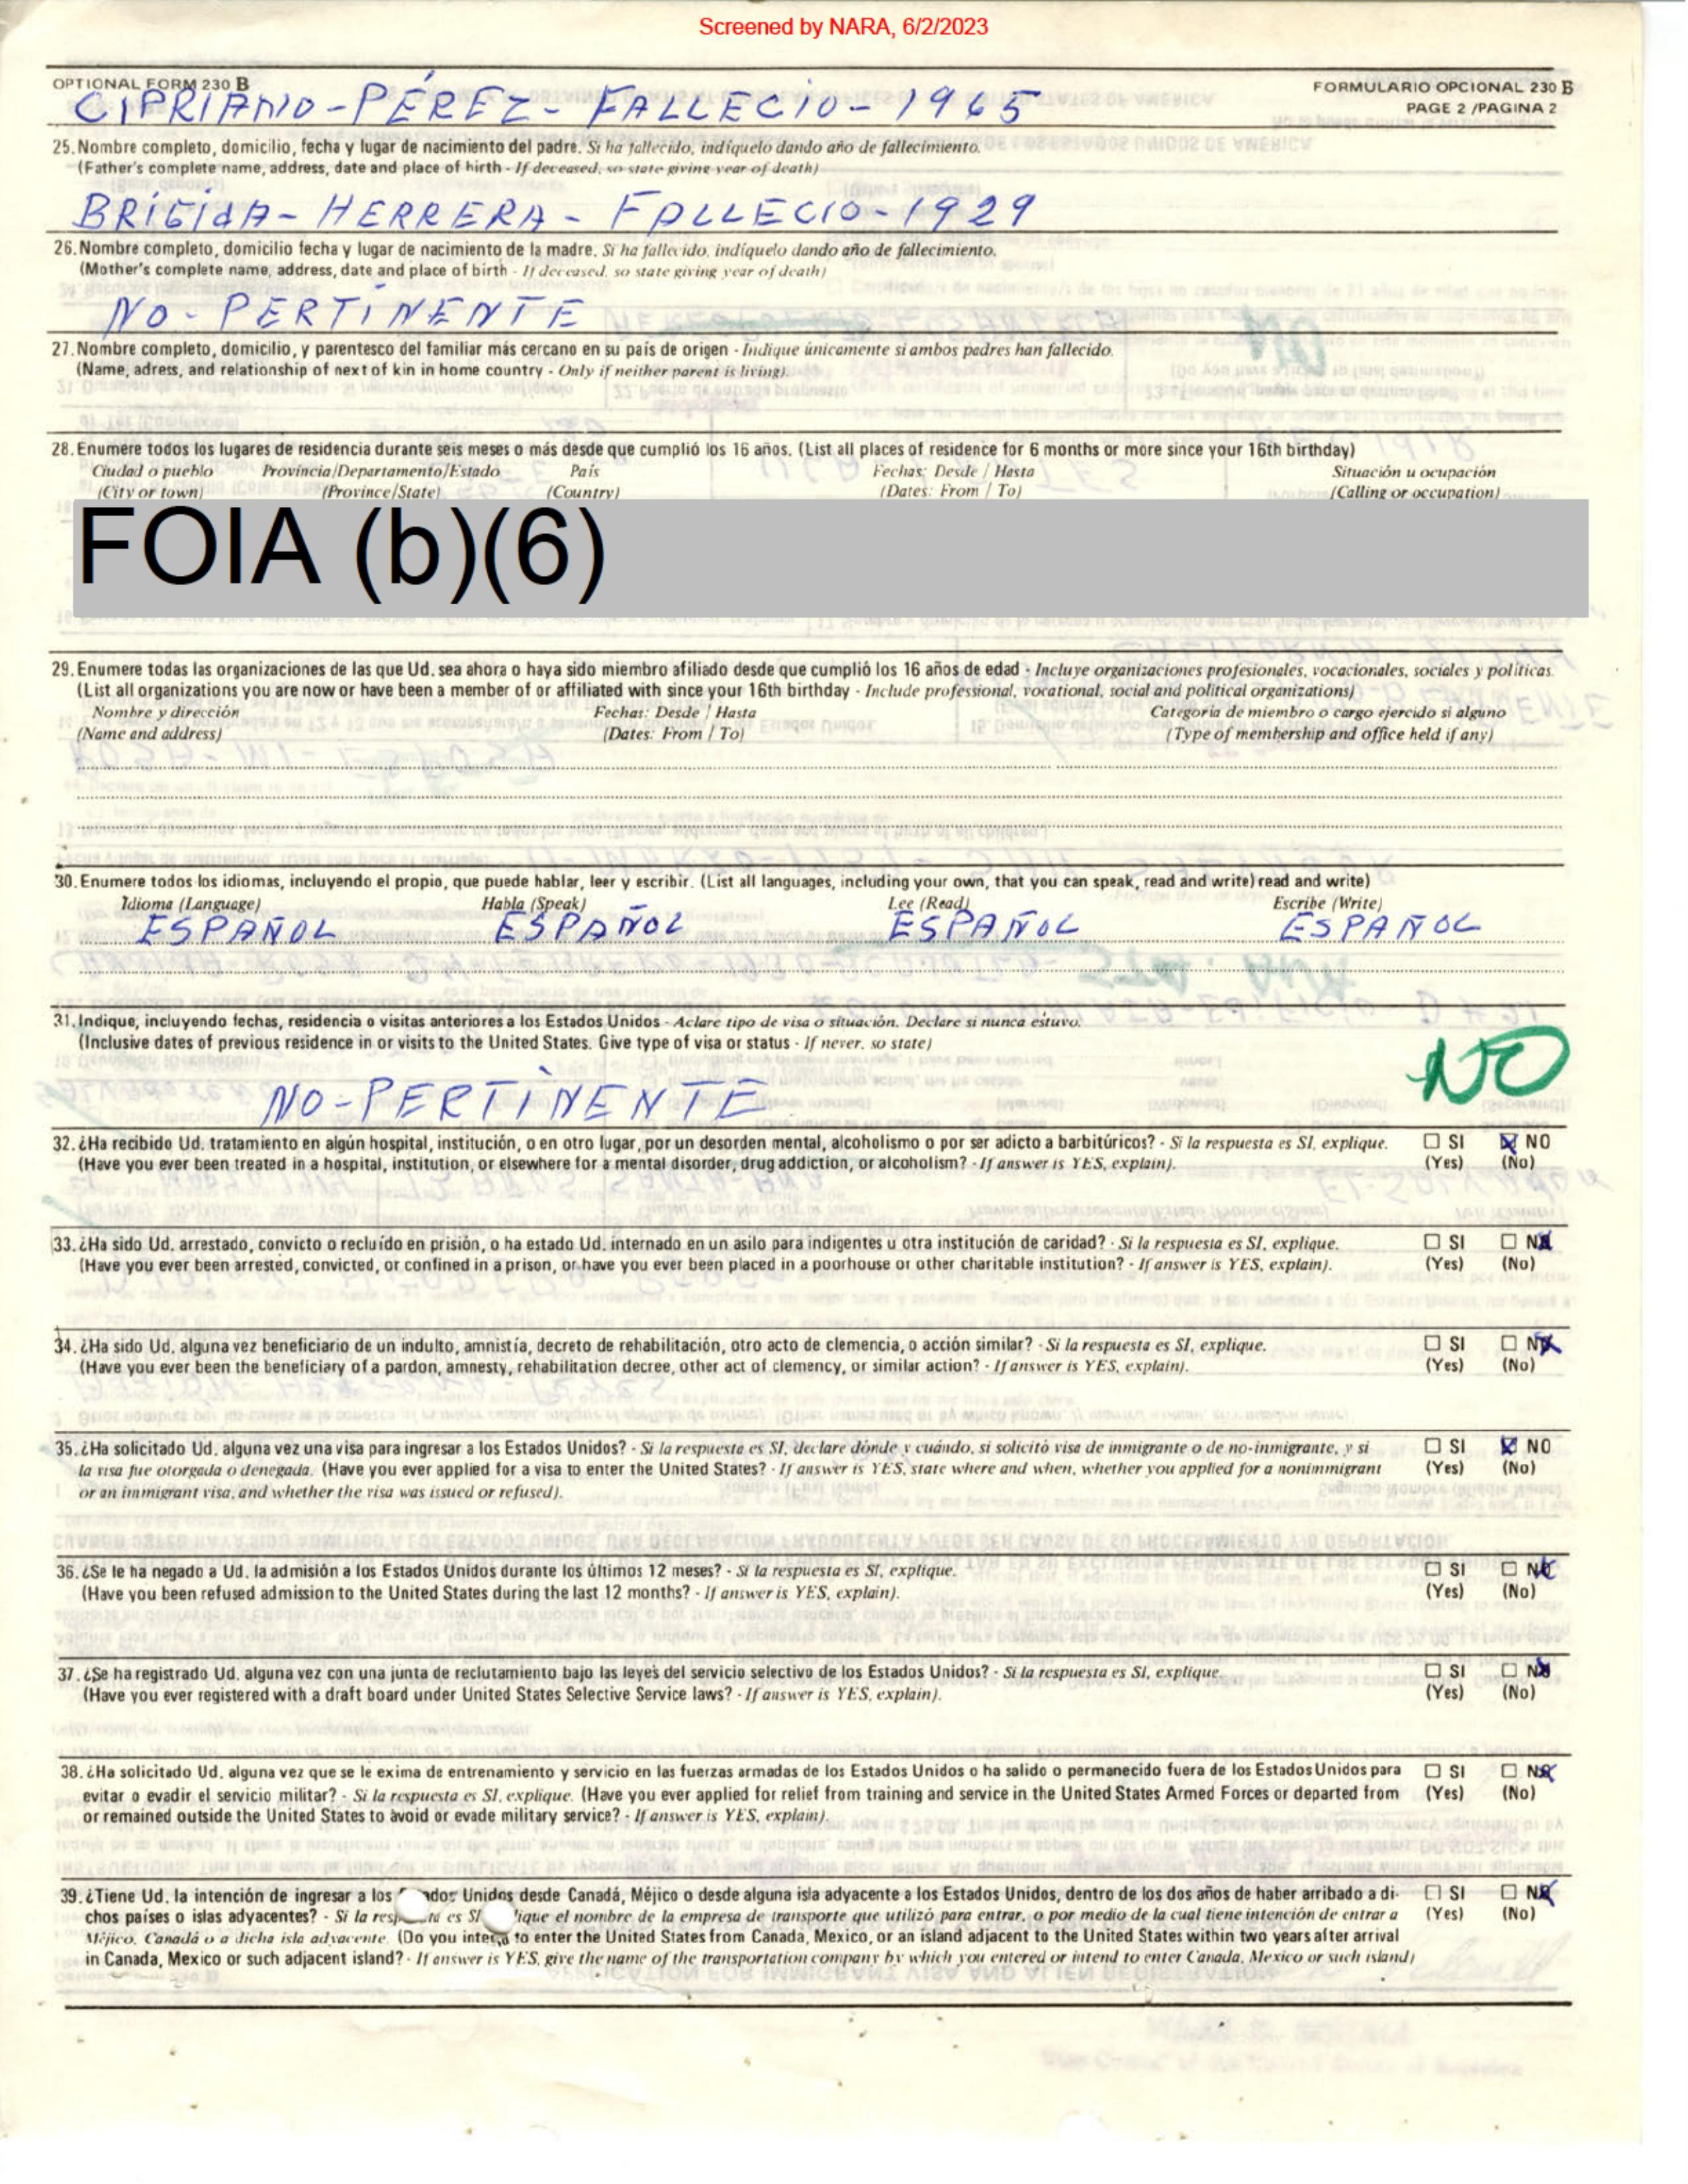 Screened by NARA, 6/2/2023
OPTIONAL FORM 230 B
FORMULARIO OPCIONAL 230 B
PAGE 2 /PAGINA 2
CIPRIANO-PÉREZ- FALLECIO- 1965
25. Nombre completo, domicilio, fecha y lugar de nacimiento del padre. Si ha fallecido, indíquelo dando año de fallecimiento.
(Father's complete name, address, date and place of birth - If deceased, so state giving year of death)
BRÍGIdA- HERRERA- FALLECIO-1929
26. Nombre completo, domicilio fecha y lugar de nacimiento de la madre. Si ha fallecido, indíquelo dando año de fallecimiento.
(Mother's complete name, address, date and place of birth - If deceased, so state giving year of death)
NO- PERTINENTE
27. Nombre completo, domicilio, y parentesco del familiar más cercano en su país de origen - Indique únicamente si ambos padres han fallecido.
(Name, adress, and relationship of next of kin in home country - Only if neither parent is living).
28. Enumere todos los lugares de residencia durante seis meses o más desde que cumplió los 16 años. (List all places of residence for 6 months or more since your 16th birthday)
Ciudad o pueblo Provincia/Departamento/Estado País Fechas: Desde / Hasta Situación u ocupación
(City or town) (Province/State) (Country) (Dates: From / To) (Calling or occupation)
FOIA (b)(6)
29. Enumere todas las organizaciones de las que Ud. sea ahora o haya sido miembro afiliado desde que cumplió los 16 años de edad - Incluye organizaciones profesionales, vocacionales, sociales y políticas.
(List all organizations you are now or have been a member of or affiliated with since your 16th birthday - Include professional, vocational, social and political organizations)
Nombre y dirección Fechas: Desde / Hasta Categoría de miembro o cargo ejercido si alguno
(Name and address) (Dates: From / To) (Type of membership and office held if any)
30. Enumere todos los idiomas, incluyendo el propio, que puede hablar, leer y escribir. (List all languages, including your own, that you can speak, read and write) read and write)
Idioma (Language) Habla (Speak) Lee (Read) Escribe (Write)
ESPAÑOL ESPAÑOL ESPAÑOL ESPAÑOL
31. Indique, incluyendo fechas, residencia o visitas anteriores a los Estados Unidos - Aclare tipo de visa o situación. Declare si nunca estuvo.
(Inclusive dates of previous residence in or visits to the United States. Give type of visa or status - If never, so state)
NO
NO-PERTINENTE
32. ¿Ha recibido Ud. tratamiento en algún hospital, institución, o en otro lugar, por un desorden mental, alcoholismo o por ser adicto a barbitúricos? - Si la respuesta es SI, explique. SI NO
(Have you ever been treated in a hospital, institution, or elsewhere for a mental disorder, drug addiction, or alcoholism? - If answer is YES, explain). (Yes) (No)
33. ¿Ha sido Ud. arrestado, convicto o recluído en prisión, o ha estado Ud. internado en un asilo para indigentes u otra institución de caridad? - Si la respuesta es SI, explique. SI NO
(Have you ever been arrested, convicted, or confined in a prison, or have you ever been placed in a poorhouse or other charitable institution? - If answer is YES, explain). (Yes) (No)
34. ¿Ha sido Ud. alguna vez beneficiario de un indulto, amnistía, decreto de rehabilitación, otro acto de clemencia, o acción similar? - Si la respuesta es SI, explique. SI NO
(Have you ever been the beneficiary of a pardon, amnesty, rehabilitation decree, other act of clemency, or similar action? - If answer is YES, explain). (Yes) (No)
35. ¿Ha solicitado Ud. alguna vez una visa para ingresar a los Estados Unidos? - Si la respuesta es SI, declare dónde y cuándo, si solicitó visa de inmigrante o de no-inmigrante, y si SI NO
la visa fue otorgada o denegada. (Have you ever applied for a visa to enter the United States? - If answer is YES, state where and when, whether you applied for a nonimmigrant (Yes) (No)
or an immigrant visa, and whether the visa was issued or refused).
36. ¿Se le ha negado a Ud. la admisión a los Estados Unidos durante los últimos 12 meses? - Si la respuesta es SI, explique. SI NO
(Have you been refused admission to the United States during the last 12 months? - If answer is YES, explain). (Yes) (No)
37. ¿Se ha registrado Ud. alguna vez con una junta de reclutamiento bajo las leyes del servicio selectivo de los Estados Unidos? - Si la respuesta es SI, explique. SI NO
(Have you ever registered with a draft board under United States Selective Service laws? - If answer is YES, explain). (Yes) (No)
38. ¿Ha solicitado Ud. alguna vez que se le exima de entrenamiento y servicio en las fuerzas armadas de los Estados Unidos o ha salido o permanecido fuera de los Estados Unidos para SI NO
evitar o evadir el servicio militar? - Si la respuesta es SI, explique. (Have you ever applied for relief from training and service in the United States Armed Forces or departed from (Yes) (No)
or remained outside the United States to avoid or evade military service? - If answer is YES, explain).
39. ¿Tiene Ud. la intención de ingresar a los Unidos desde Canadá, Méjico o desde alguna isla adyacente a los Estados Unidos, dentro de los dos años de haber arribado a di- SI NO
chos países o islas adyacentes? - Si la es SI el nombre de la empresa de transporte que utilizó para entrar, o por medio de la cual tiene intención de entrar a (Yes) (No)
Méjico, Canadá o a dicha isla adyacente. (Do you intend to enter the United States from Canada, Mexico, or an island adjacent to the United States within two years after arrival
in Canada, Mexico or such adjacent island? - If answer is YES, give the name of the transportation company by which you entered or intend to enter Canada, Mexico or such island)